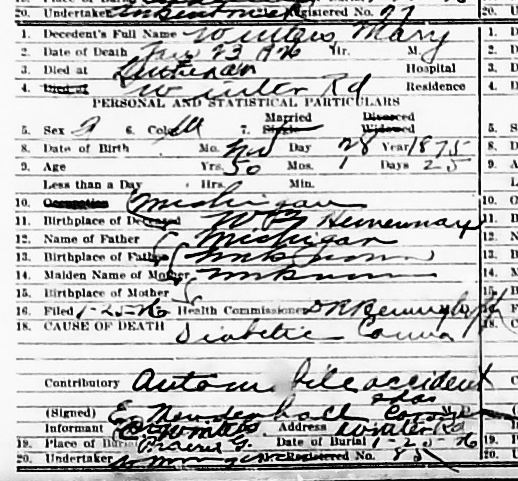 20. Undertaker Registered No. 77
1. Decedent's Full Name Winters, Mary
2. Date of Death Jan 23 1926 Hr. M.
3. Died at Lutheran Hospital
4. Winter Rd Residence
PERSONAL AND STATISTICAL PARTICULARS
Married Divorced
5. Sex F 6. Col W 7. Single Widowed
8. Date of Birth Mo. Nov Day 28 Year 1875
9. Age Yrs. 50 Mos. 1 Days 25
Less than a Day Hrs. Min.
10. Occupation Michigan
11. Birthplace of Deceased Wm Hemenway
12. Name of Father Michigan
13. Birthplace of Father unknown
14. Maiden Name of Mother unknown
15. Birthplace of Mother
16. Filed 1-25-26 Health Commissioner
18. CAUSE OF DEATH Diabetic Coma
Contributory Automobile accident
(Signed) E. Coroner
Informant Winters Address Winter Rd
19. Place of Burial Prairie G. Date of Burial 1-25-26
20. Undertaker Registered No. 85